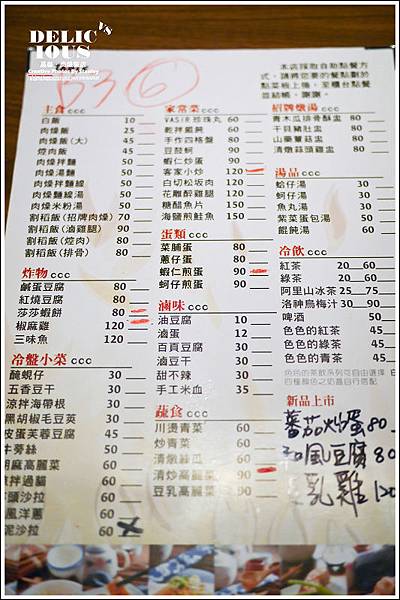 DELIC VS
IOUS
Creative Photos By Stanley
B3 ⑥
本店採取自助點餐方
式，請將您要的餐點劃於
點菜板上後，至櫃台點餐
並結帳，謝謝。
主食 ccc
白飯 10
肉燥飯 25
肉燥飯(大) 45
焢肉飯 45
肉燥拌麵 50
肉燥湯麵 50
肉燥拌麵線 50
肉燥麵線湯 50
肉燥米粉湯 50
割稻飯(招牌肉燥) 70
割稻飯(滷雞腿) 90
割稻飯(焢肉) 80
割稻飯(排骨) 80
炸物 ccc
鹹蛋豆腐 80
紅燒豆腐 80
莎莎蝦餅 80
椒麻雞 120
三味魚 120
冷盤小菜 ccc
醃蜆仔 30
五香豆干 30
涼拌海帶根 30
黑胡椒毛豆莢 30
皮蛋芙蓉豆腐 45
牛蒡絲 50
胡麻高麗菜 60
涼拌過貓 60
沙拉 60
風洋蔥 60
泥沙拉 60
家常菜 ccc
VASIR珍珠丸 60
乾拌餛飩 60
手作四格盤 80
豆鼓蚵 90
蝦仁炒蛋 90
客家小炒 120
白切松坂肉 120
花雕醉雞腿 120
糖醋魚片 150
海鹽煎鮭魚 150
蛋類 ccc
菜脯蛋 80
蔥仔蛋 80
蝦仁煎蛋 90
蚵仔煎蛋 90
滷味 ccc
油豆腐 10
滷蛋 12
百頁豆腐 30
滷豆干 30
甜不辣 30
手工米血 35
蔬食 ccc
川燙青菜 60
炒青菜 60
清燉絲瓜 60
清炒高麗菜 90
豆乳高麗菜 90
招牌燉湯 ccc
青木瓜排骨酥盅
干貝豬肚盅
山藥蓮菇盅
清燉蒜頭雞盅
湯品 ccc
蛤仔湯
蚵仔湯
魚丸湯
紫菜蛋包湯
餛飩湯 60
冷飲 ccc
紅茶 20 60
綠茶 20 60
阿里山冰茶 25 75
洛神烏梅汁 30 90
啤酒 50
色色的紅茶 45
色色的綠茶 45
色色的青茶 45
新品上市
蕃茄炒蛋 80
豆腐 80
乳雞 120